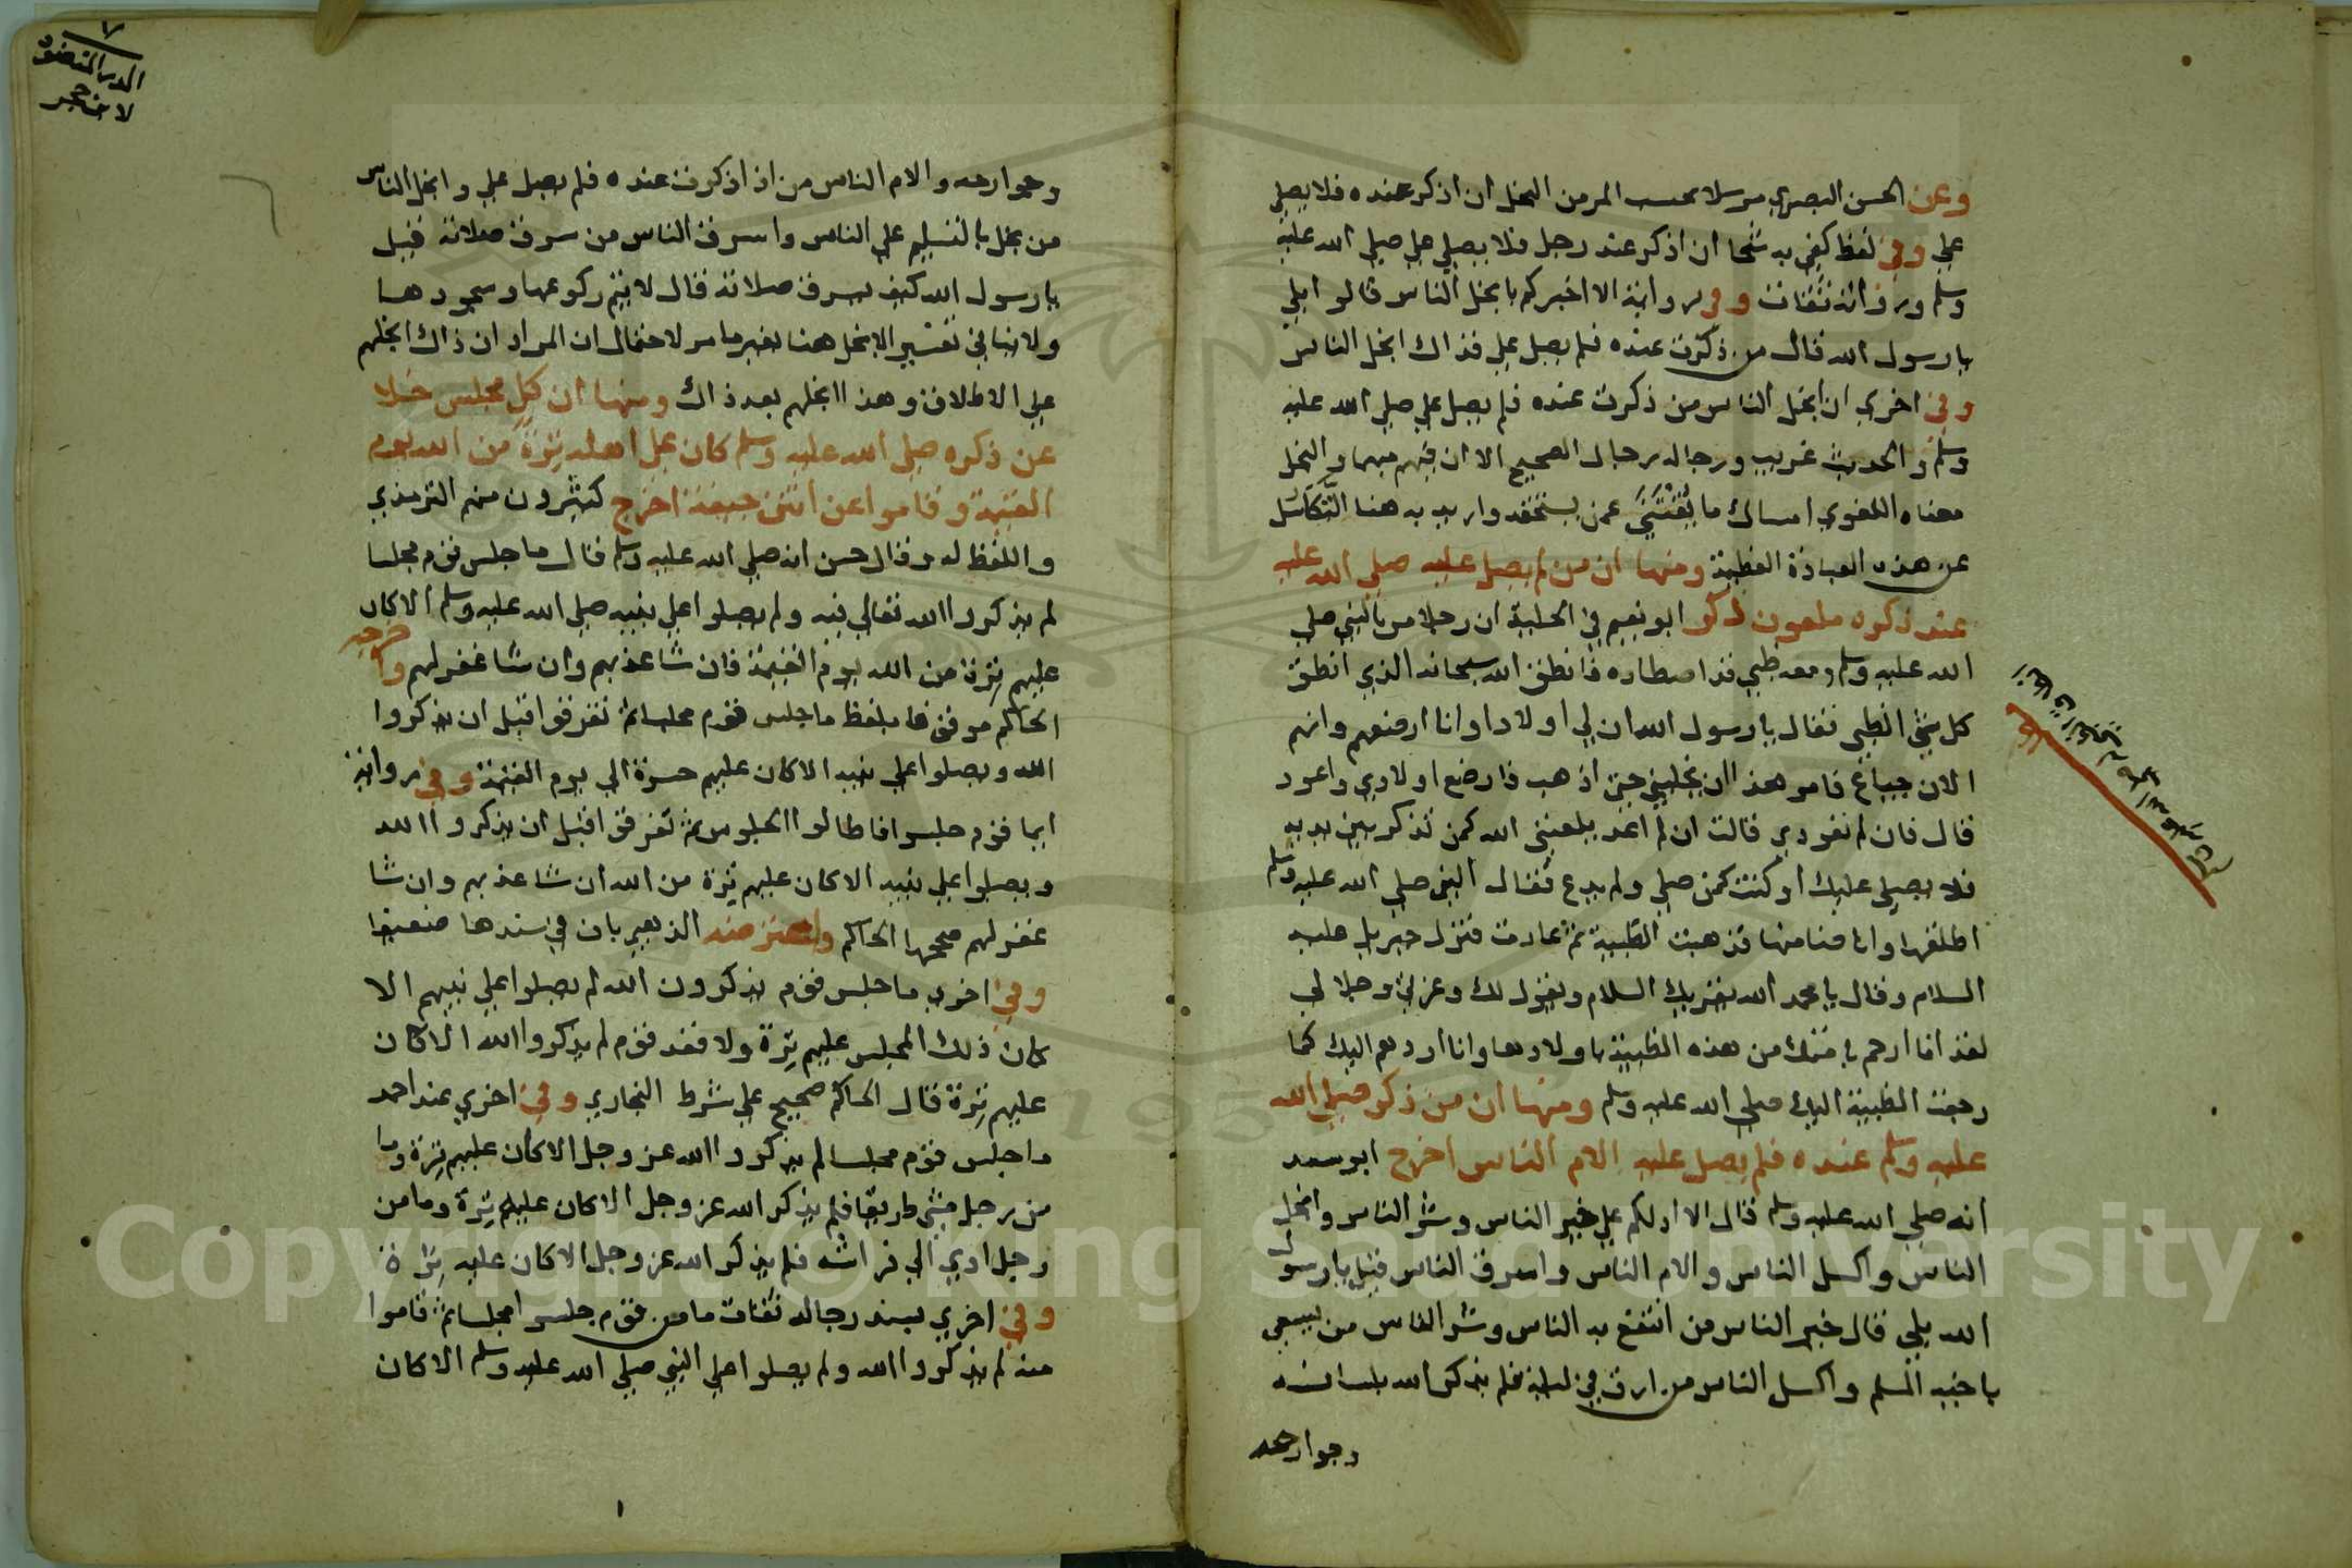 وعن الحسن البصري مرسلا بحسب المرمن البخل ان اذكر عنده فلا يصلي
علي وفي لفظ كفى به شحا ان اذكر عند رجل فلا يصلي علي صلى الله عليه
وسلم ورواته ثقات وفي رواية الا اخبركم بابخل الناس قالوا بلي
يا رسول الله قال من ذكرت عنده فلم يصل علي فذاك ابخل الناس
وفي اخري ان ابخل الناس من ذكرت عنده فلم يصل علي صلي الله عليه
وسلم والحديث غريب ورجاله رجال الصحيح الا ان فيهم مبهما والبخل
معناه اللغوي امساك ما يقتني عمن يستحقه واريد به هنا التكاسل
عن هذه العبادة العظيمة ومنها ان من لم يصل عليه صلي الله عليه
عند ذكره ملعون ذكر ابو نعيم في الحلية ان رجلا مر بالنبي صلي
الله عليه وسلم ومعه ظبي قد اصطاده فانطق الله سبحانه الذي انطق
كل شي الظبي فقال يا رسول الله ان لي اولادا وانا ارضعهم وانهم
الان جياع فامر هذا ان يخليني حتى اذهب فارضع اولادي واعود
قال فان لم تعودي قالت ان لم اعد يلعنني الله كمن تذكر بين يديه
فلا يصلي عليك او كنت كمن صلي ولم يدع فقال النبي صلي الله عليه وسلم
اطلقها وانا ضامنها فذهبت الظبية ثم عادت فنزل جبريل عليه
السلام وقال يا محمد الله يقريك السلام ويقول لك وعزتي وجلالي
لقد انا ارحم بامتك من هذه الظبية باولادها وانا اردهم اليك كما
رجعت الظبية اليك صلي الله عليه وسلم ومنها ان من ذكر صلي الله
عليه وسلم عنده فلم يصل عليه الام الناس اخرج ابو سعد
انه صلي الله عليه وسلم قال الا ادلكم علي خير الناس وشر الناس وابخل
الناس واكسل الناس والام الناس واسرق الناس قيل يا رسول
الله بلي قال خير الناس من انتفع به الناس وشر الناس من يسعى
باخيه المسلم واكسل الناس من ارق في ليلة فلم يذكر الله بلسانه
وجوارحه
الدر المنضود
لابن حجر
وجوارحه والام الناس من اذا ذكرت عنده فلم يصل علي وابخل الناس
من بخل بالتسليم علي الناس واسرق الناس من سرق صلاته قيل
يا رسول الله كيف يسرق صلاته قال لا يتم ركوعها وسجودها
ولا ينافي تفسير الابخل هنا بغير ما مر لاحتمال ان المراد ان ذاك ابخلهم
علي الاطلاق وهذا ابخلهم بعد ذاك ومنها ان كل مجلس خلا
عن ذكره صلي الله عليه وسلم كان علي اهله ترة من الله يوم
القيمة وقاموا عن انتن جيفة اخرج كثيرون منهم الترمذي
واللفظ له وقال حسن انه صلي الله عليه وسلم قال ما جلس قوم مجلسا
لم يذكروا الله تعالي فيه ولم يصلوا علي نبيه صلي الله عليه وسلم الا كان
عليهم ترة من الله يوم القيمة فان شا عذبهم وان شا غفر لهم واخرجه
الحاكم موقوفا بلفظ ما جلس قوم مجلسا ثم تفرقوا قبل ان يذكروا
الله ويصلوا علي نبيه الا كان عليهم حسرة الي يوم القيمة وفي رواية
ايما قوم جلسوا فاطالوا الجلوس ثم تفرقوا قبل ان يذكروا الله
ويصلوا علي نبيه الا كان عليهم ترة من الله ان شا عذبهم وان شا
غفر لهم صححها الحاكم واعترضه الذهبي بان في سندها ضعيفا
وفي اخري ما جلس قوم يذكرون الله لم يصلوا علي نبيهم الا
كان ذلك المجلس عليهم ترة ولا قعد قوم لم يذكروا الله الا كان
عليهم ترة قال الحاكم صحيح علي شرط البخاري وفي اخري عند احمد
ما جلس قوم مجلسا لم يذكروا الله عز وجل الا كان عليهم ترة وما
من رجل مشي طريقا فلم يذكر الله عز وجل الا كان عليه ترة وما من
رجل اوي الي فراشه فلم يذكر الله عز وجل الا كان عليه ترة
وفي اخري بسند رجاله ثقات ما من قوم جلسوا مجلسا ثم قاموا
منه لم يذكروا الله ولم يصلوا علي النبي صلي الله عليه وسلم الا كان
١
Copyright © King Saud University